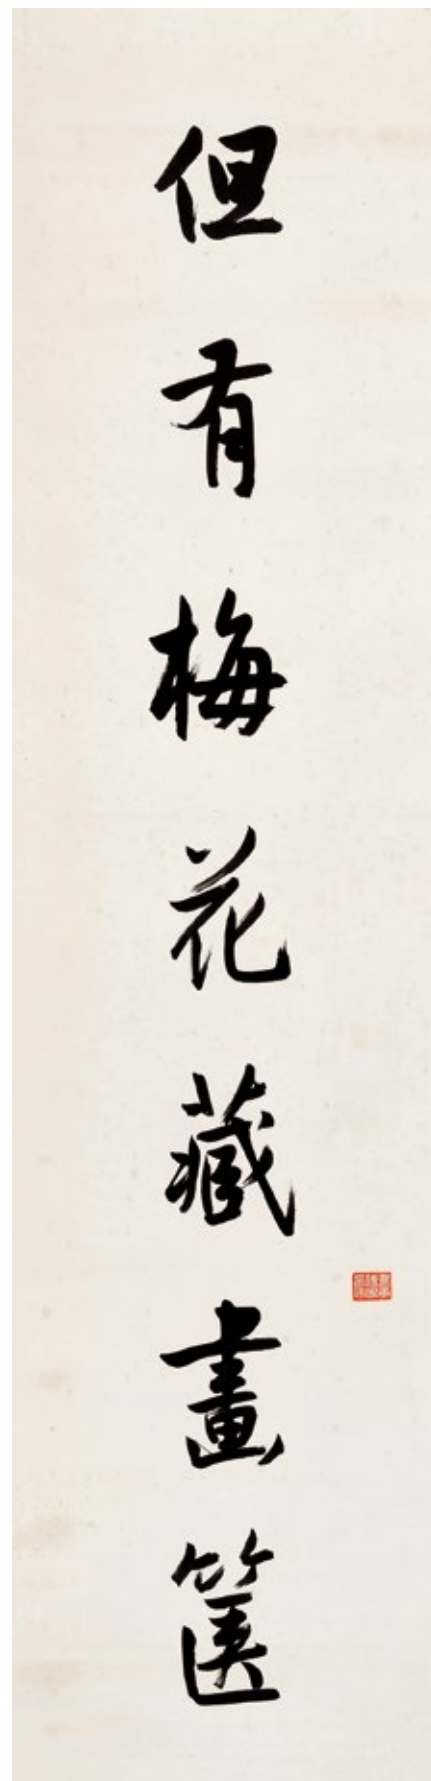 但有梅花藏畫篋